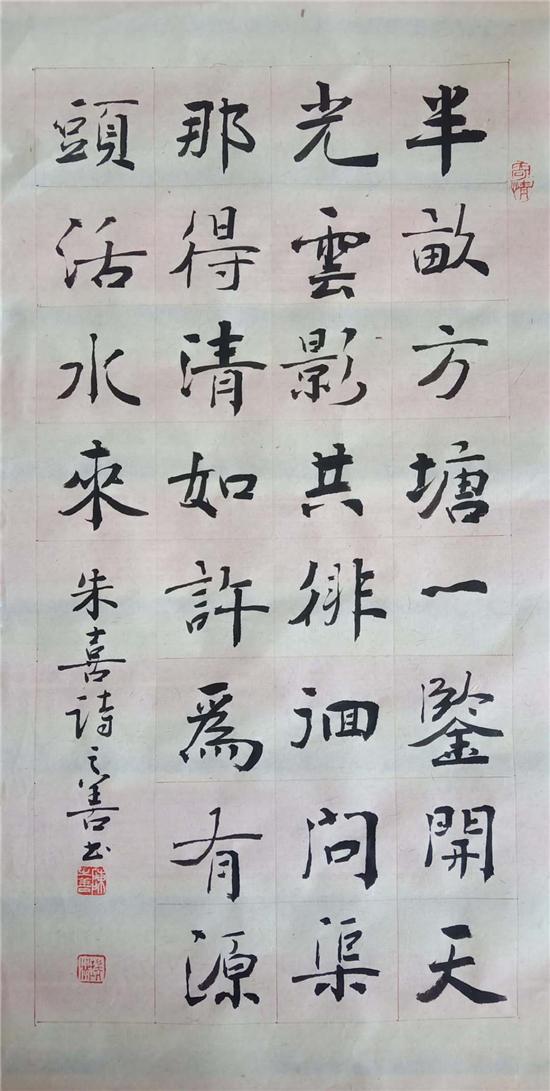 半畝方塘一鑒開天
光雲影共徘徊問渠
那得清如許爲有源
頭活水來 朱喜詩之善书